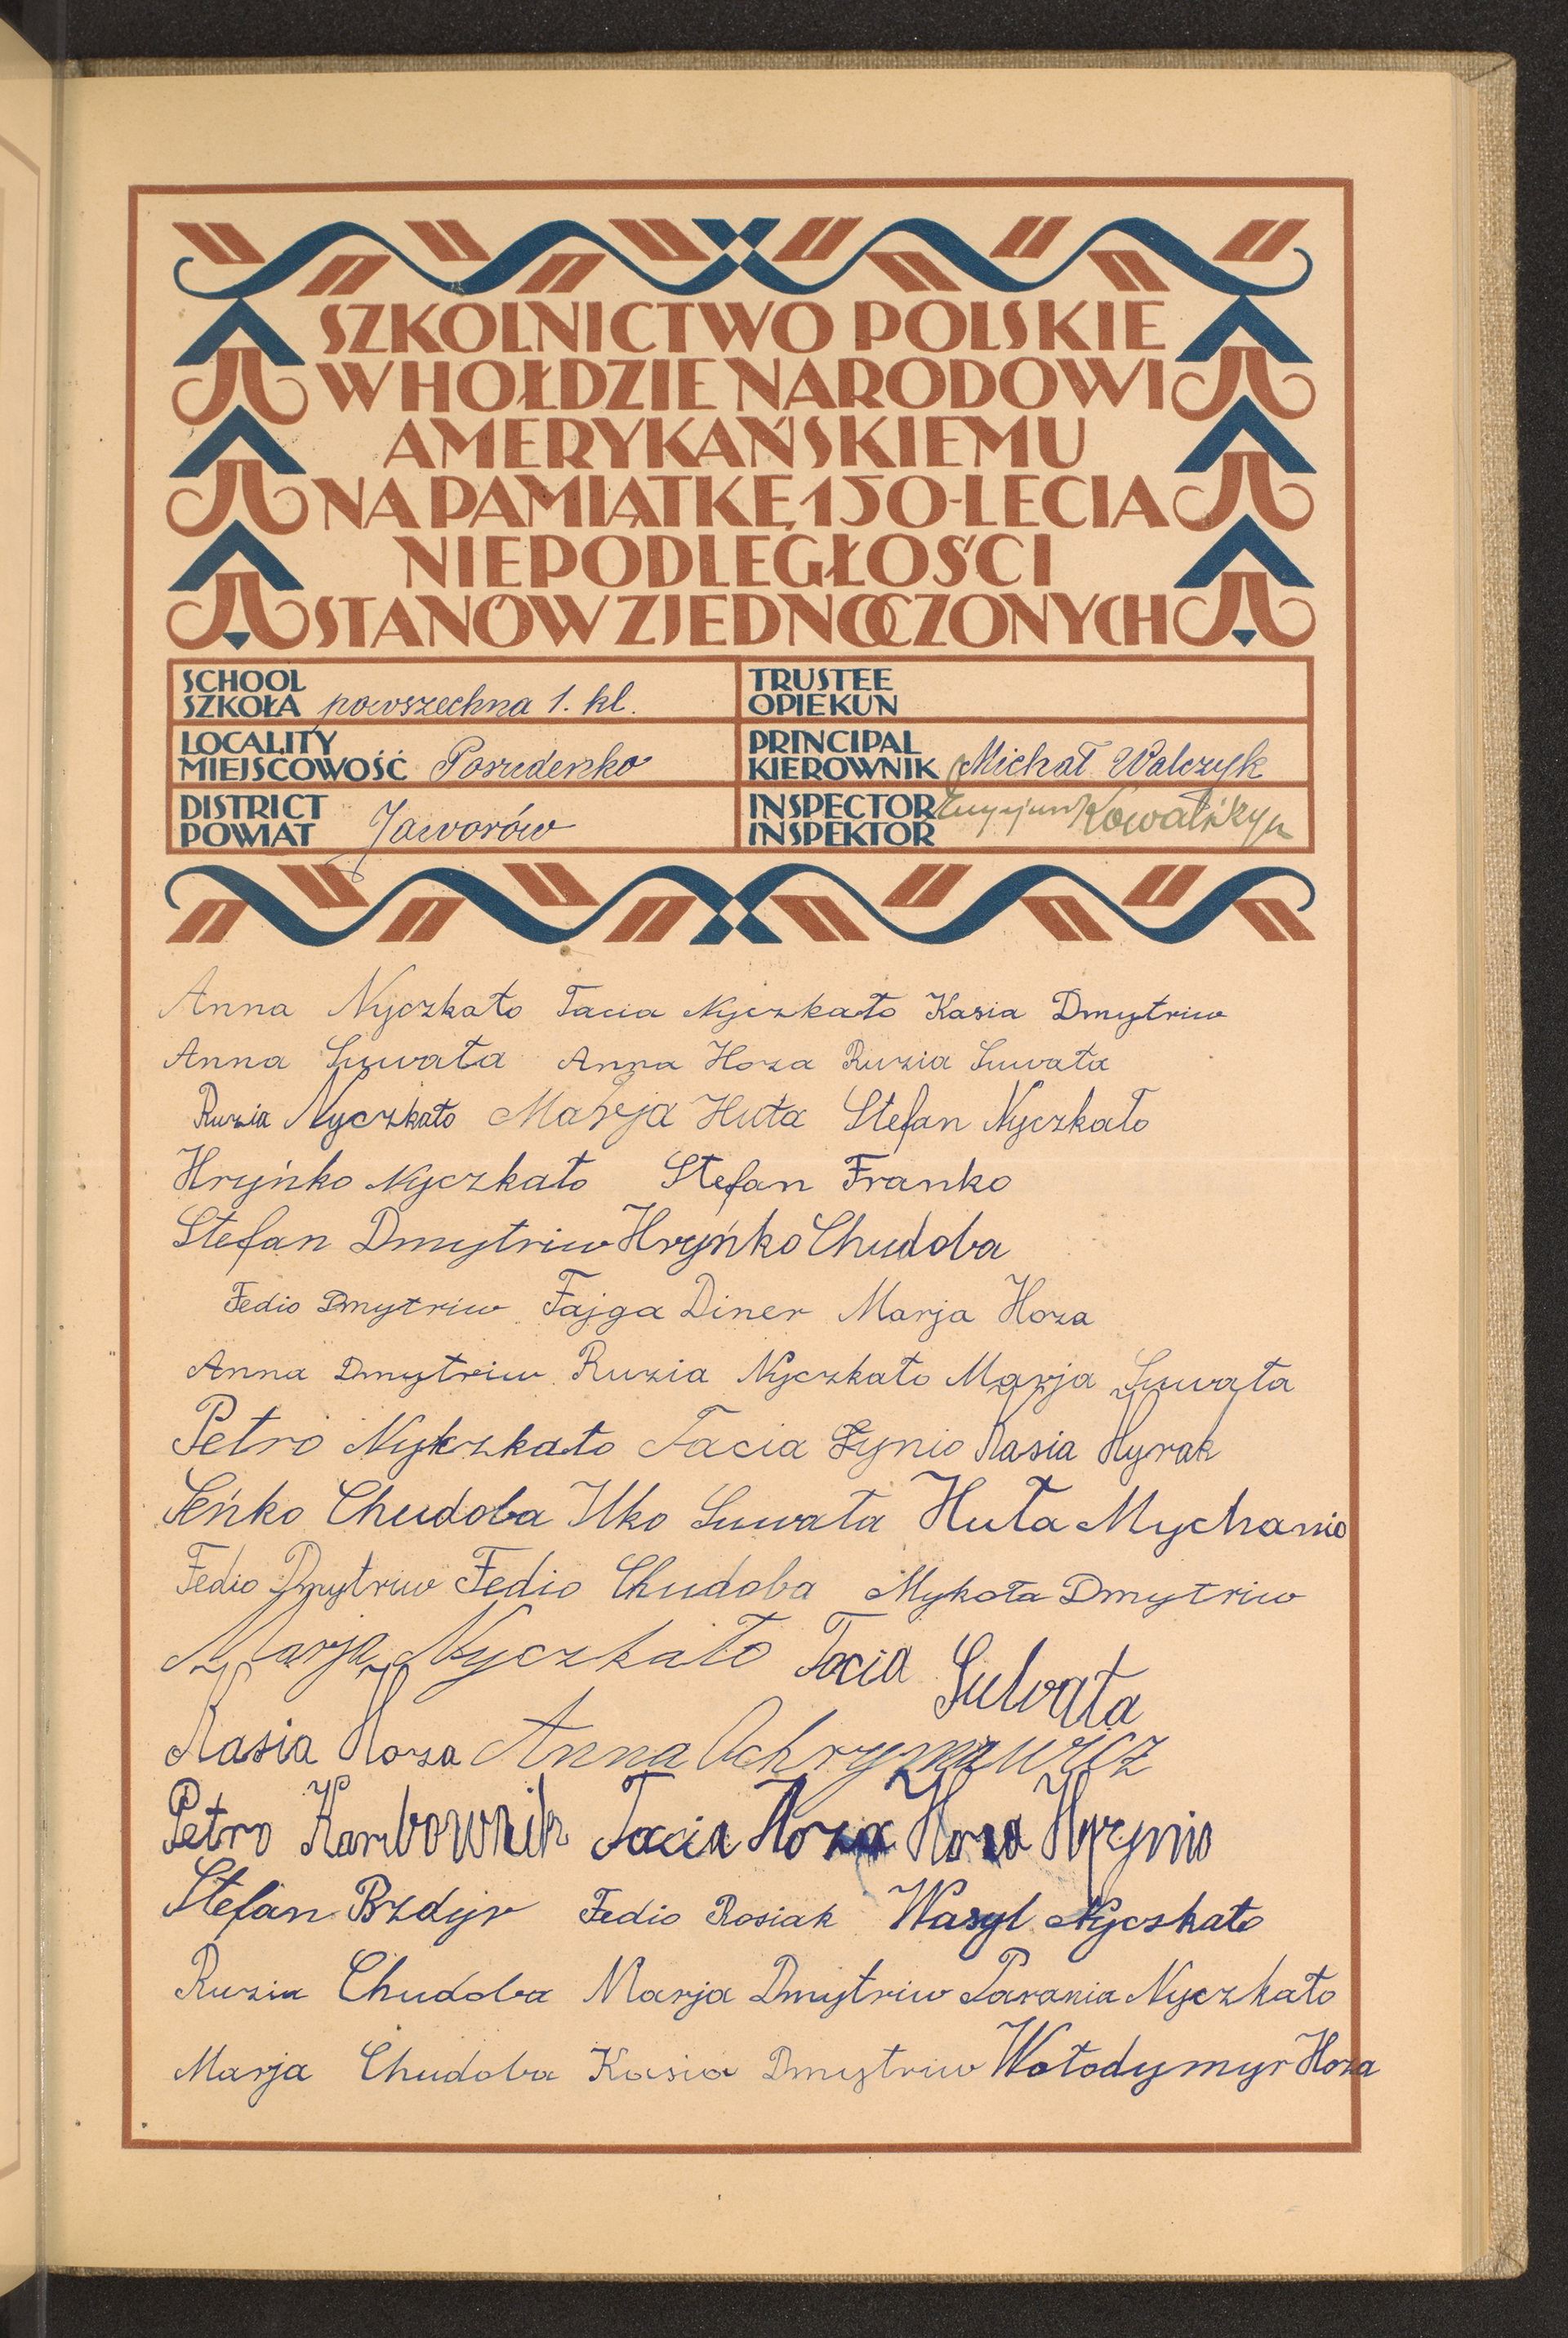 SZKOLNICTWO POLSKIE
W HOŁDZIE NARODOWI
AMERYKAŃSKIEMU
NA PAMIĄTKĘ 150-LECIA
NIEPODLEGŁOŚCI
STANÓW ZJEDNOCZONYCH
SCHOOL
SZKOŁA powszechna 1. kl.
TRUSTEE
OPIEKUN
LOCALITY
MIEJSCOWOŚĆ Porudenko
PRINCIPAL
KIEROWNIK Michał Walczyk
DISTRICT
POWIAT Jaworów
INSPECTOR
INSPEKTOR
Anna Nyczkało Tacia Nyczkało Kasia Dmytriw
Anna Suwała Anna Hoza Ruzia Suwała
Ruzia Nyczkało Marja Huta Stefan Nyczkało
Hryńko Nyczkało Stefan Franko
Stefan Dmytriw Hryńko Chudoba
Fedio Dmytriw Fajga Diner Marja Hoza
Anna Dmytriw Ruzia Nyczkało Marja Suwała
Petro Nyczkało Tacia Kasia Hyrak
Seńko Chudoba Ilko Suwała Huta Mychanio
Fedio Dmytriw Fedio Chudoba Mykoła Dmytriw
Marja Nyczkało Tacia Suwała
Kasia Hoza Anna Ochrymowicz
Petro Karbownik Tacia Hoza Hoza Hrynio
Stefan Bzdyr Fedio Rosiak Wasyl Nyczkało
Ruzia Chudoba Marja Dmytriw Parania Nyczkało
Marja Chudoba Kasia Dmytriw Wołodymyr Hoza